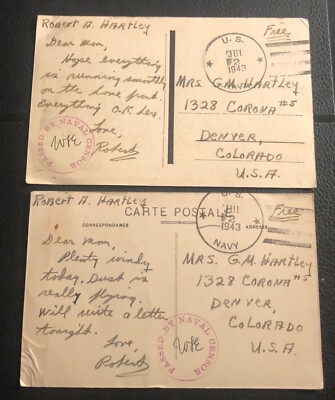 Robert A. Hartley
Dear Mom,
Hope everything
is running smoothly
on the home front.
Everything O.K. here.
Love,
Robert
PASSED BY NAVAL CENSOR
U. S.
JUL
2
1943
Free
Mrs. G.M. Hartley
1328 Corona #5
Denver,
Colorado
U.S.A.
Robert A. Hartley
CARTE POSTALE
CORRESPONDANCE
ADRESSE
Dear Mom,
Plenty windy
today. Dust is
really flying.
Will write a letter
tonight.
Love,
Robert
PASSED BY NAVAL CENSOR
U. S.
JUL
2
1943
NAVY
Free
Mrs. G.M. Hartley
1328 Corona #5
Denver,
Colorado
U.S.A.